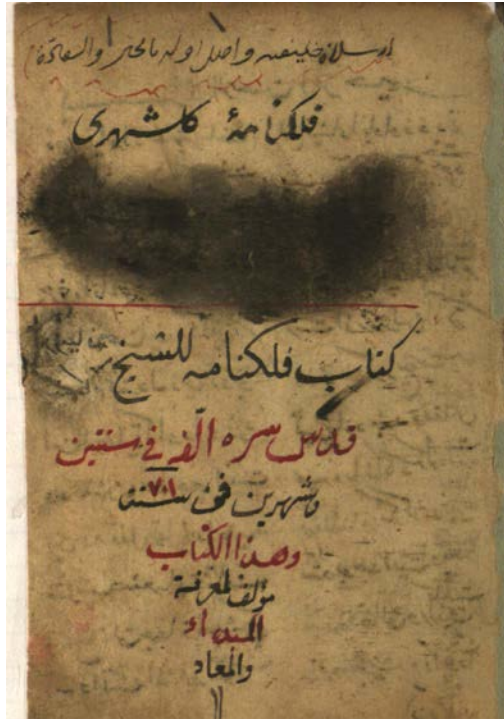 فلكنامهٔ كلشهرى
كتاب فلكنامه للشيخ
قدس سره الّفه فى سنتين
وشهرين فى سنة ٧٠١
وهذا الكتاب
مؤلف لمعرفة
المبداء
والمعاد